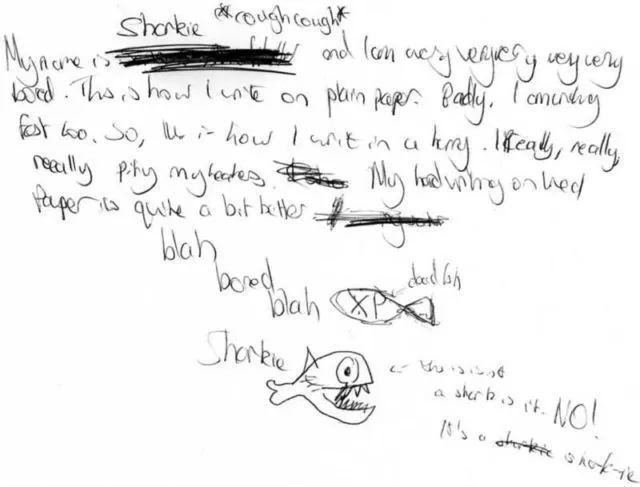 Sharkie *cough cough*
My name is and I am very very very very very
bored. This is how I write on plain paper. Badly. I am writing
fast too. So, this is how I write in a hurry. I Really, really,
reeally pity my teachers. My handwriting on lined
Paper is quite a bit better
blah
bored
blah XP dead fish
Sharkie
this is not
a shark is it. NO!
It's a sharkie shark-ie